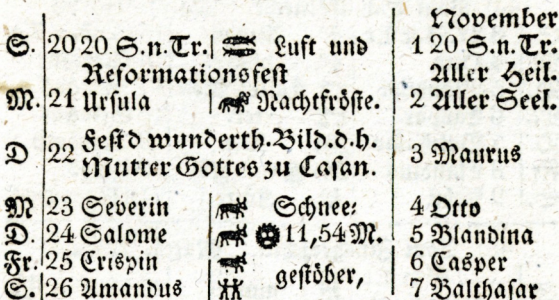 November
S. 20 20. S. n. Tr. Luft und 1 20 S. n. Tr.
Reformationsfest Aller Heil.
M. 21 Ursula Nachtfröste. 2 Aller Seel.
D 22 Fest d wunderth. Bild. d. h. 3 Maurus
Mutter Gottes zu Casan.
M 23 Severin Schnee- 4 Otto
D. 24 Salome 11,54 M. 5 Blandina
Fr. 25 Crispin gestöber, 6 Casper
S. 26 Amandus 7 Balthasar